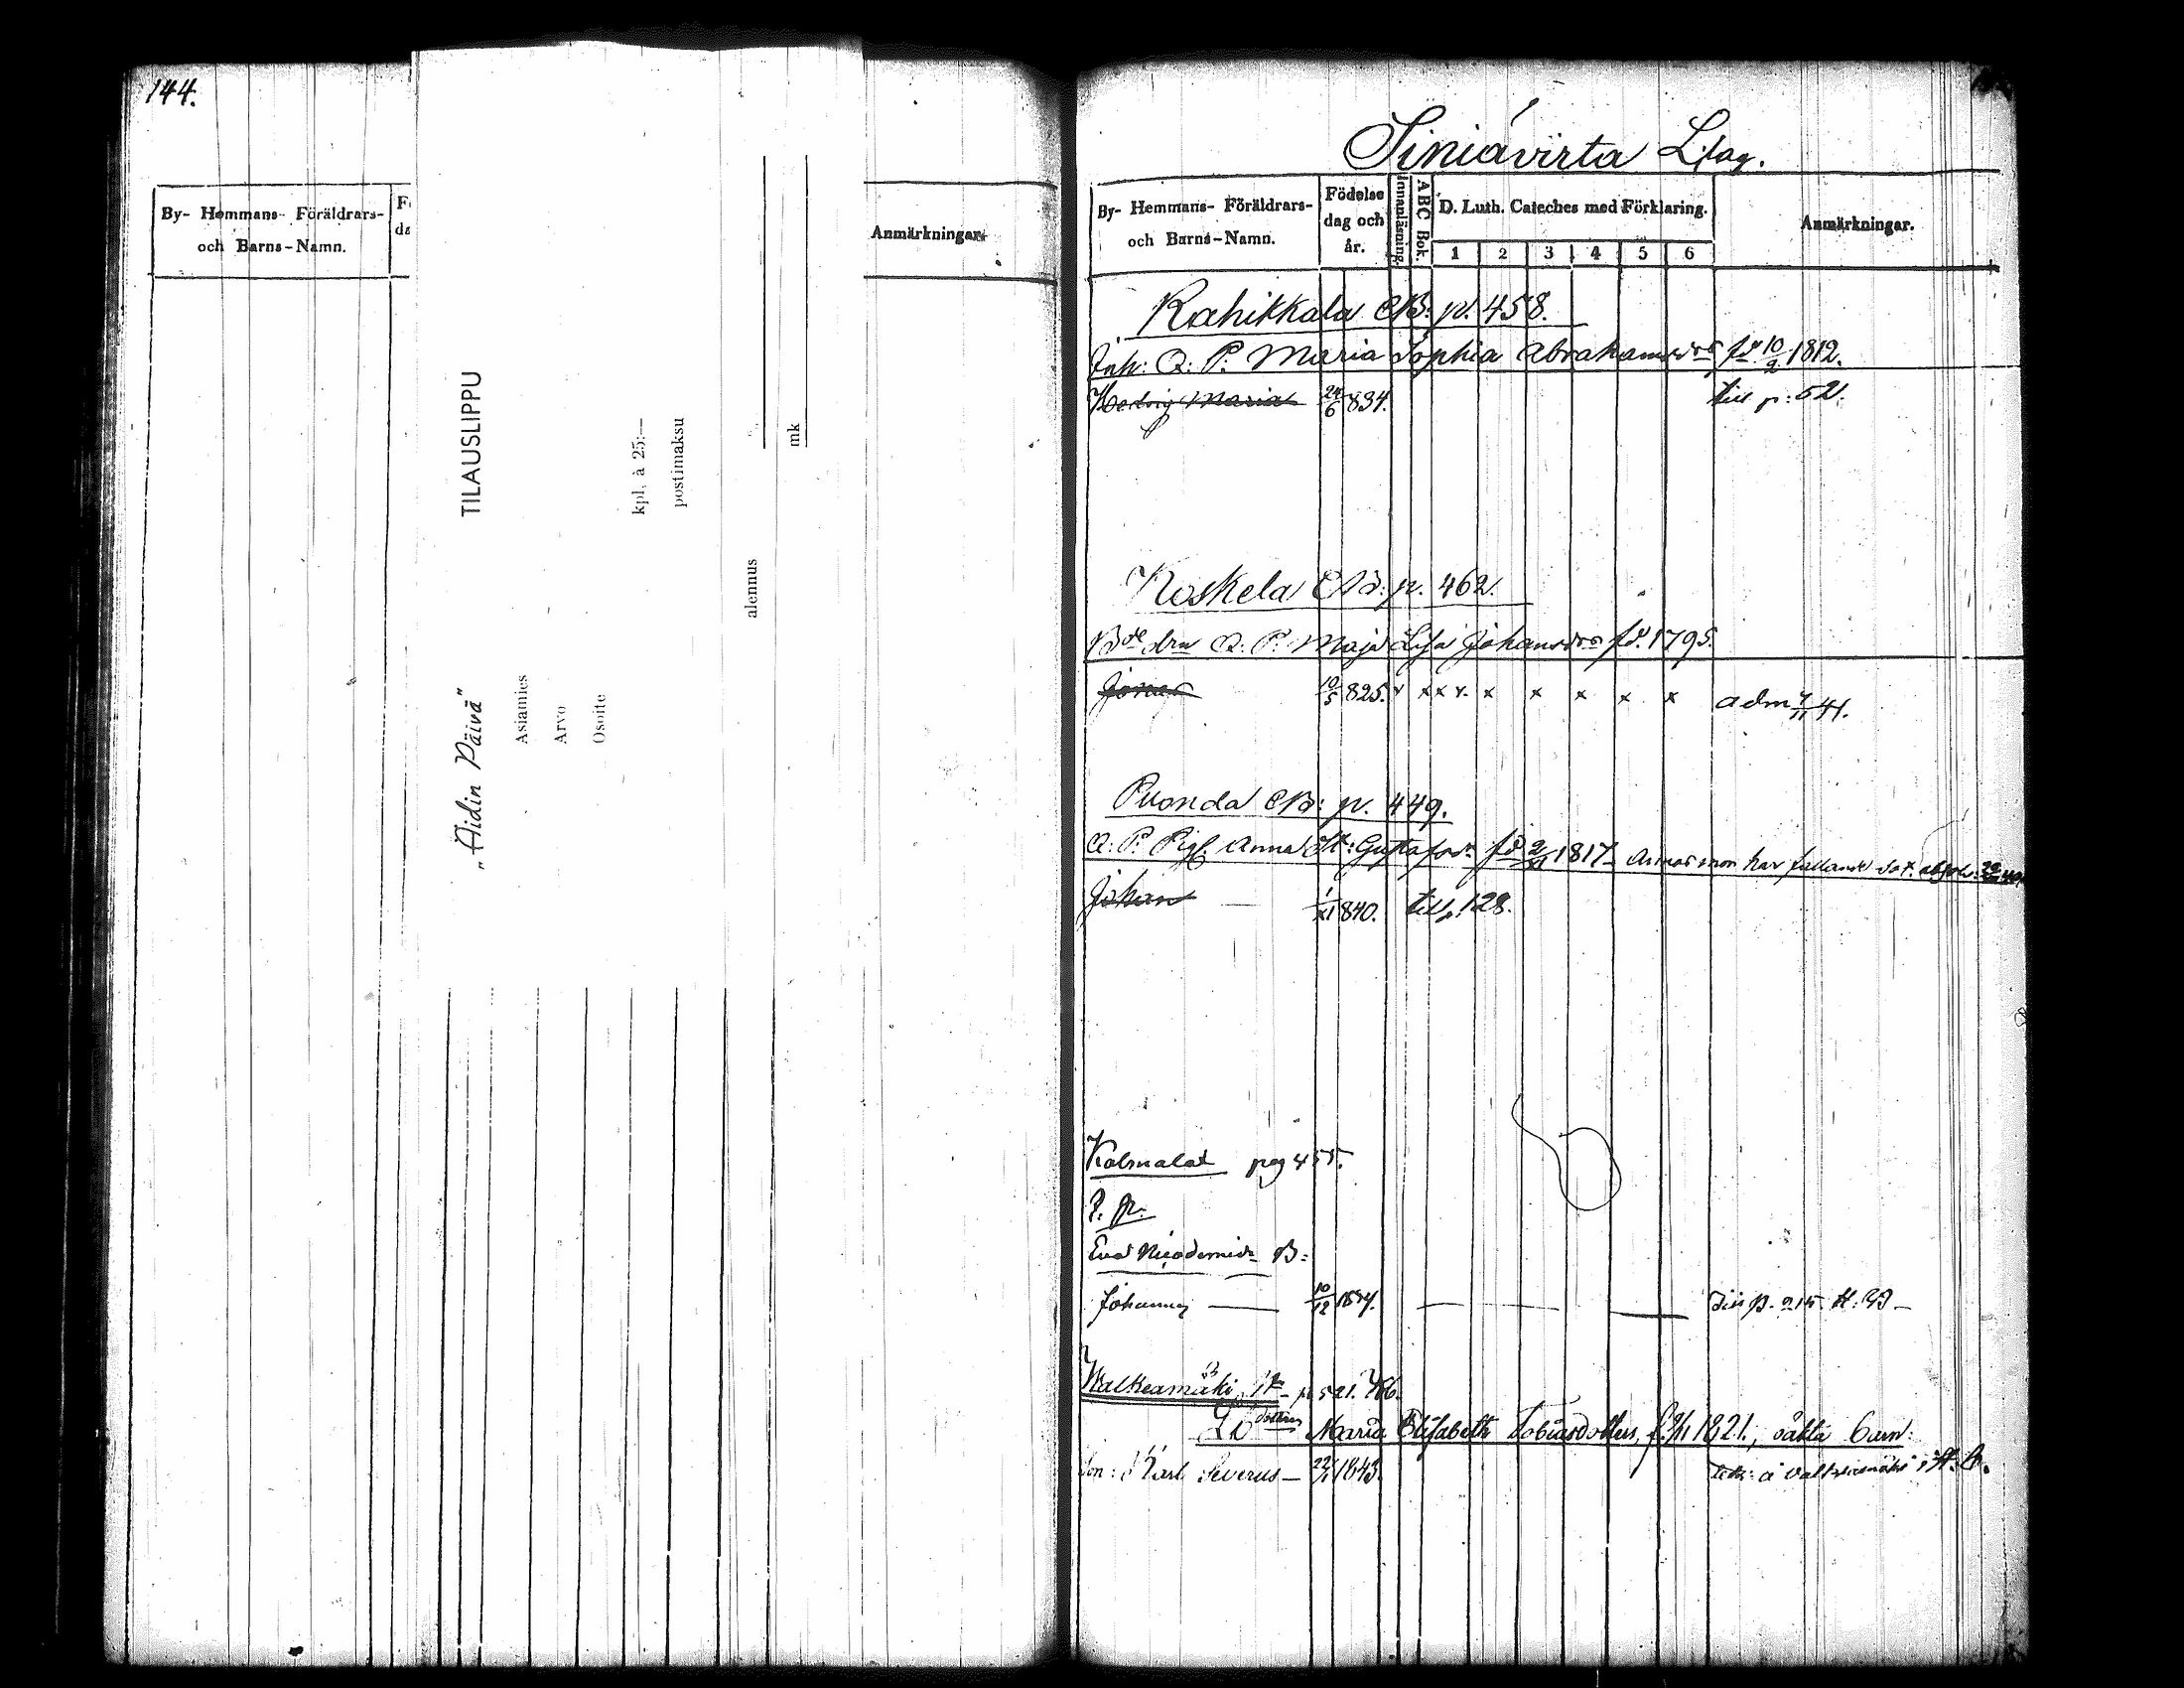 144.
By- Hemmans- Föräldrars-
och Barns-Namn.
Anmärkningar.
„Äidin Päivä"
TILAUSLIPPU
Asiamies
Arvo
Osoite
kpl. à 25:—
postimaksu
alennus
mk
Siniävirta L:lag.
By- Hemmans- Föräldrars-
och Barns-Namn.
Födelse
dag och
år.
Innanläsning.
ABC Bok.
D. Luth. Cateches med Förklaring.
1 2 3 4 5 6
Anmärkningar.
Rahikkala CB: p. 458.
Inh: Q: P. Maria Sophia Abrahamsdr fd 10/2 1812.
Hedvig Maria 24/6 834. till p: 52.
Koskela CB: p. 462.
Q: P. Maja Lisa Johansdr fd. 1795.
Jonas 10/5 825. x x x x x x x x x adm 7/11 41.
Puonda CB: p. 449.
Q: P. Pig. Anna St: Gustafsdr fd 2/XI 1817. har fallande sot.
Johan — 1/XI 840. till p. 128.
Kalmalat pag 455.
Eva Nicodemidr B:
Johannes — 10/12 1834. Till p. 215
Walkeamäki p 521.
Maria Elisabeth Tobiasdotters, 1821, oäkta barn:
Son: Karl Severus — 22/1 1843. à Valkeamäki i H. B.